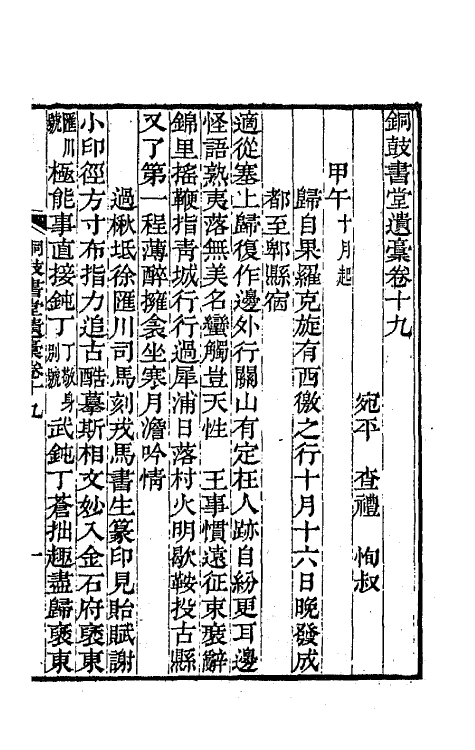 銅鼓書堂遺稾卷十九
宛平　查禮　恂叔
甲午十月起
歸自果羅克旋有西徼之行十月十六日晚發成
都至郫縣宿
適從塞上歸復作邊外行關山有定在人跡自紛更耳邊
怪語熟夷落無美名蠻觸豈天性　王事慣遠征束裝辭
錦里搖鞭指青城行行過犀浦日落村火明歇鞍投古縣
又了第一程薄醉擁衾坐寒月澹吟情
過楸坻徐匯川司馬刻戎馬書生篆印見貽賦謝
小印徑方寸布指力追古酷摹斯相文妙入金石府褒東
匯川號極能事直接鈍丁丁敬身別號武鈍丁蒼拙趣盡歸褒東
銅鼓書堂遺稾卷十九
一